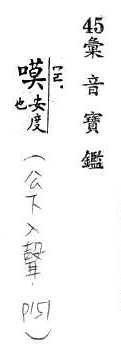 45彙音寶鑑
嗼 安度也
(公下入聲, P151)